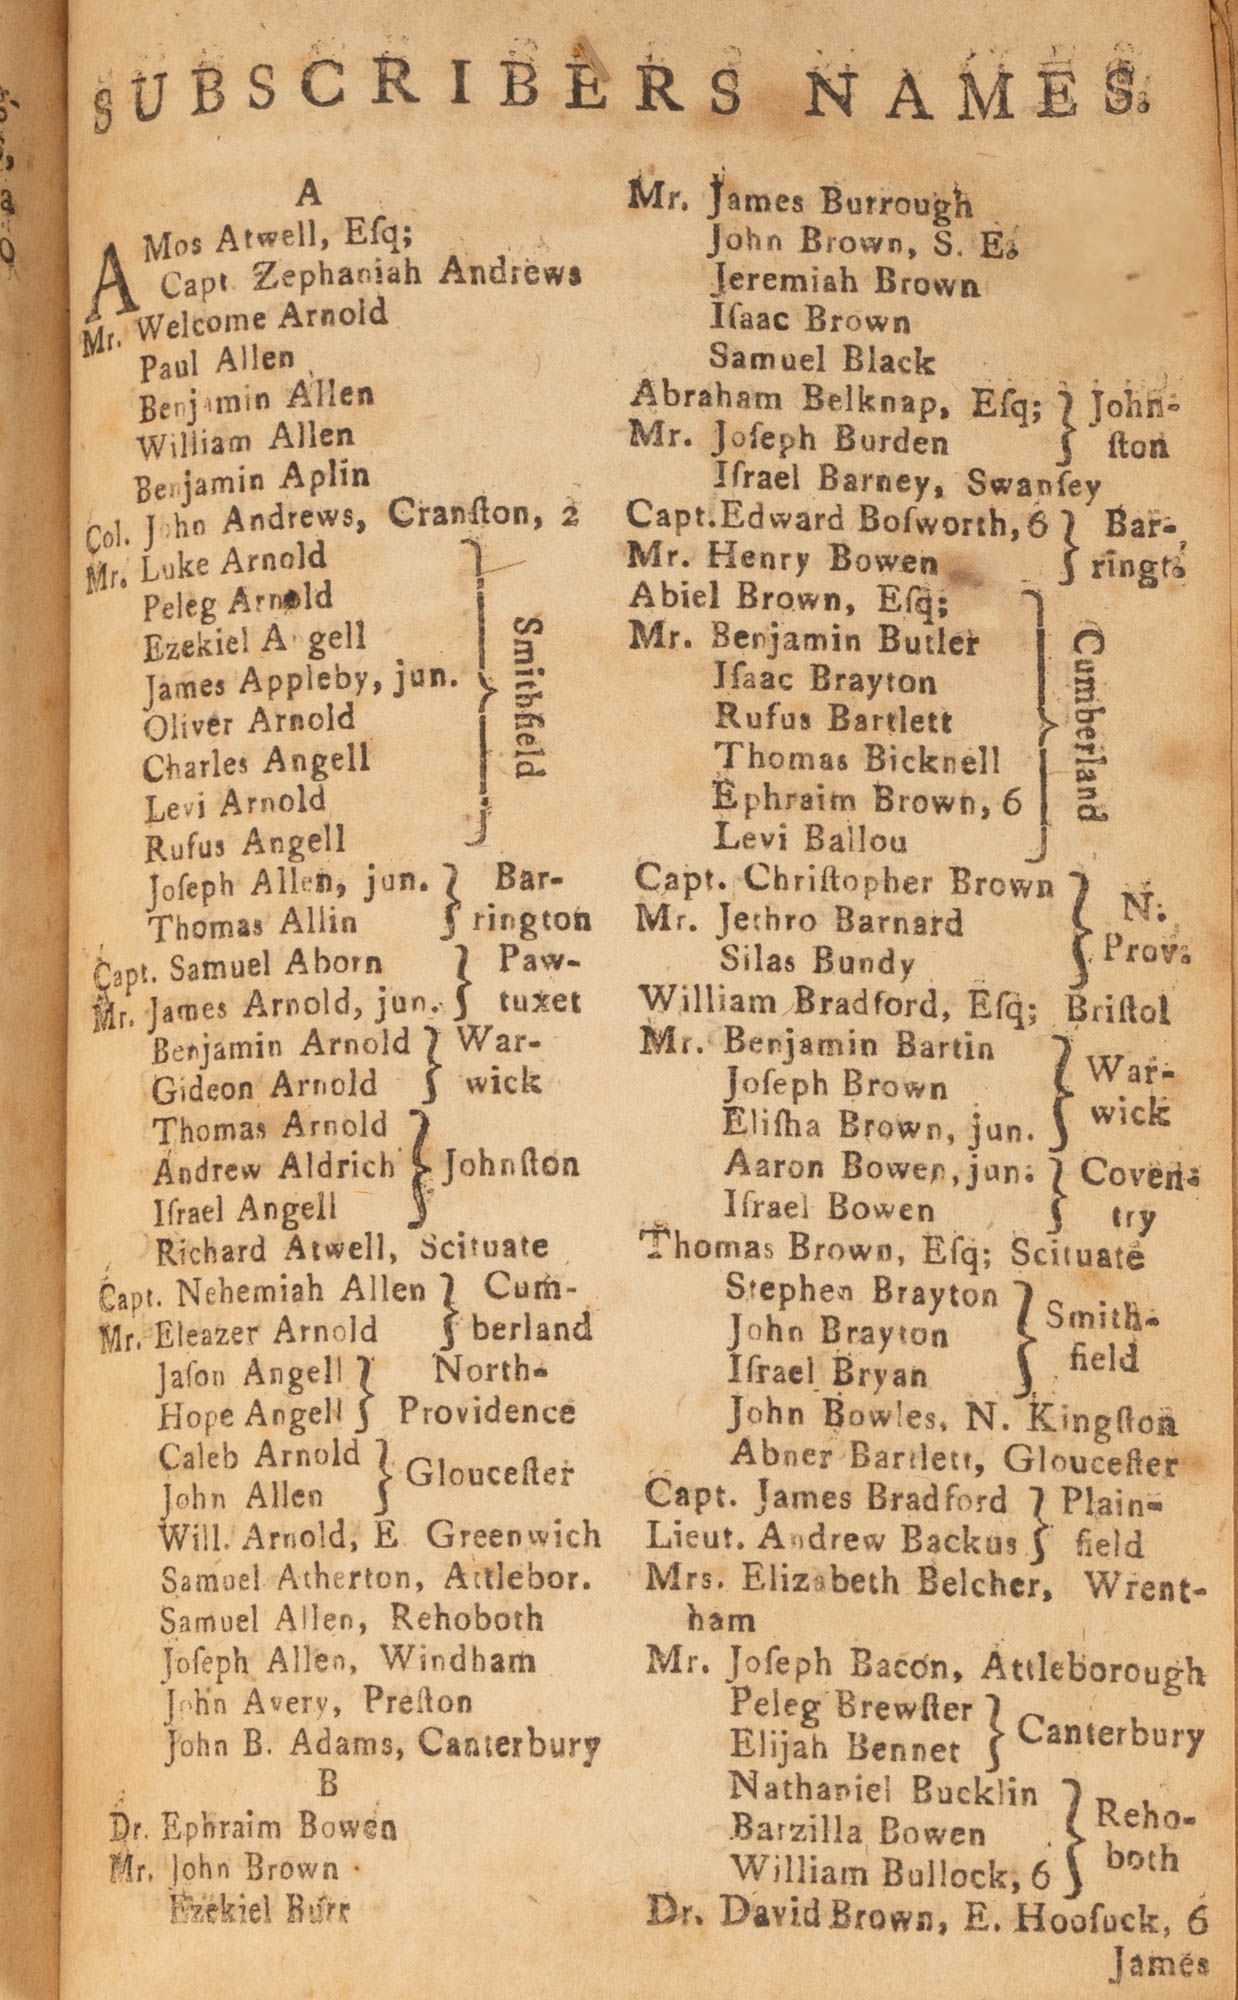 SUBSCRIBERS NAMES.
A
AMos Atwell, Eſq;
Capt. Zephaniah Andrews
Mr. Welcome Arnold
Paul Allen
Benjamin Allen
William Allen
Benjamin Aplin
Col. John Andrews, Cranſton, 2
Mr. Luke Arnold
Peleg Arnold
Ezekiel A gell
James Appleby, jun.
Oliver Arnold
Charles Angell
Levi Arnold
Rufus Angell
Smithfield
Joſeph Allen, jun. } Bar-
Thomas Allin } rington
Capt. Samuel Aborn } Paw-
Mr. James Arnold, jun. } tuxet
Benjamin Arnold } War-
Gideon Arnold } wick
Thomas Arnold
Andrew Aldrich } Johnſton
Iſrael Angell
Richard Atwell, Scituate
Capt. Nehemiah Allen } Cum-
Mr. Eleazer Arnold } berland
Jaſon Angell } North-
Hope Angell } Providence
Caleb Arnold } Glouceſter
John Allen
Will. Arnold, E Greenwich
Samuel Atherton, Attlebor.
Samuel Allen, Rehoboth
Joſeph Allen, Windham
John Avery, Preſton
John B. Adams, Canterbury
B
Dr. Ephraim Bowen
Mr. John Brown
Ezekiel Burr
Mr. James Burrough
John Brown, S. E.
Jeremiah Brown
Iſaac Brown
Samuel Black
Abraham Belknap, Eſq; } John-
Mr. Joſeph Burden } ſton
Iſrael Barney, Swanſey
Capt. Edward Boſworth, 6 } Bar-
Mr. Henry Bowen } ringt.
Abiel Brown, Eſq;
Mr. Benjamin Butler
Iſaac Brayton
Rufus Bartlett
Thomas Bicknell
Ephraim Brown, 6
Levi Ballou
Cumberland
Capt. Chriſtopher Brown } N.
Mr. Jethro Barnard } Prov.
Silas Bundy
William Bradford, Eſq; Briſtol
Mr. Benjamin Bartin
Joſeph Brown } War-
Eliſha Brown, jun. } wick
Aaron Bowen, jun. } Coven-
Iſrael Bowen } try
Thomas Brown, Eſq; Scituate
Stephen Brayton } Smith-
John Brayton } field
Iſrael Bryan
John Bowles, N. Kingſton
Abner Bartlett, Glouceſter
Capt. James Bradford } Plain-
Lieut. Andrew Backus } field
Mrs. Elizabeth Belcher, Wrent-
ham
Mr. Joſeph Bacon, Attleborough
Peleg Brewſter } Canterbury
Elijah Bennet
Nathaniel Bucklin } Reho-
Barzilla Bowen } both
William Bullock, 6
Dr. David Brown, E. Hooſuck, 6
James